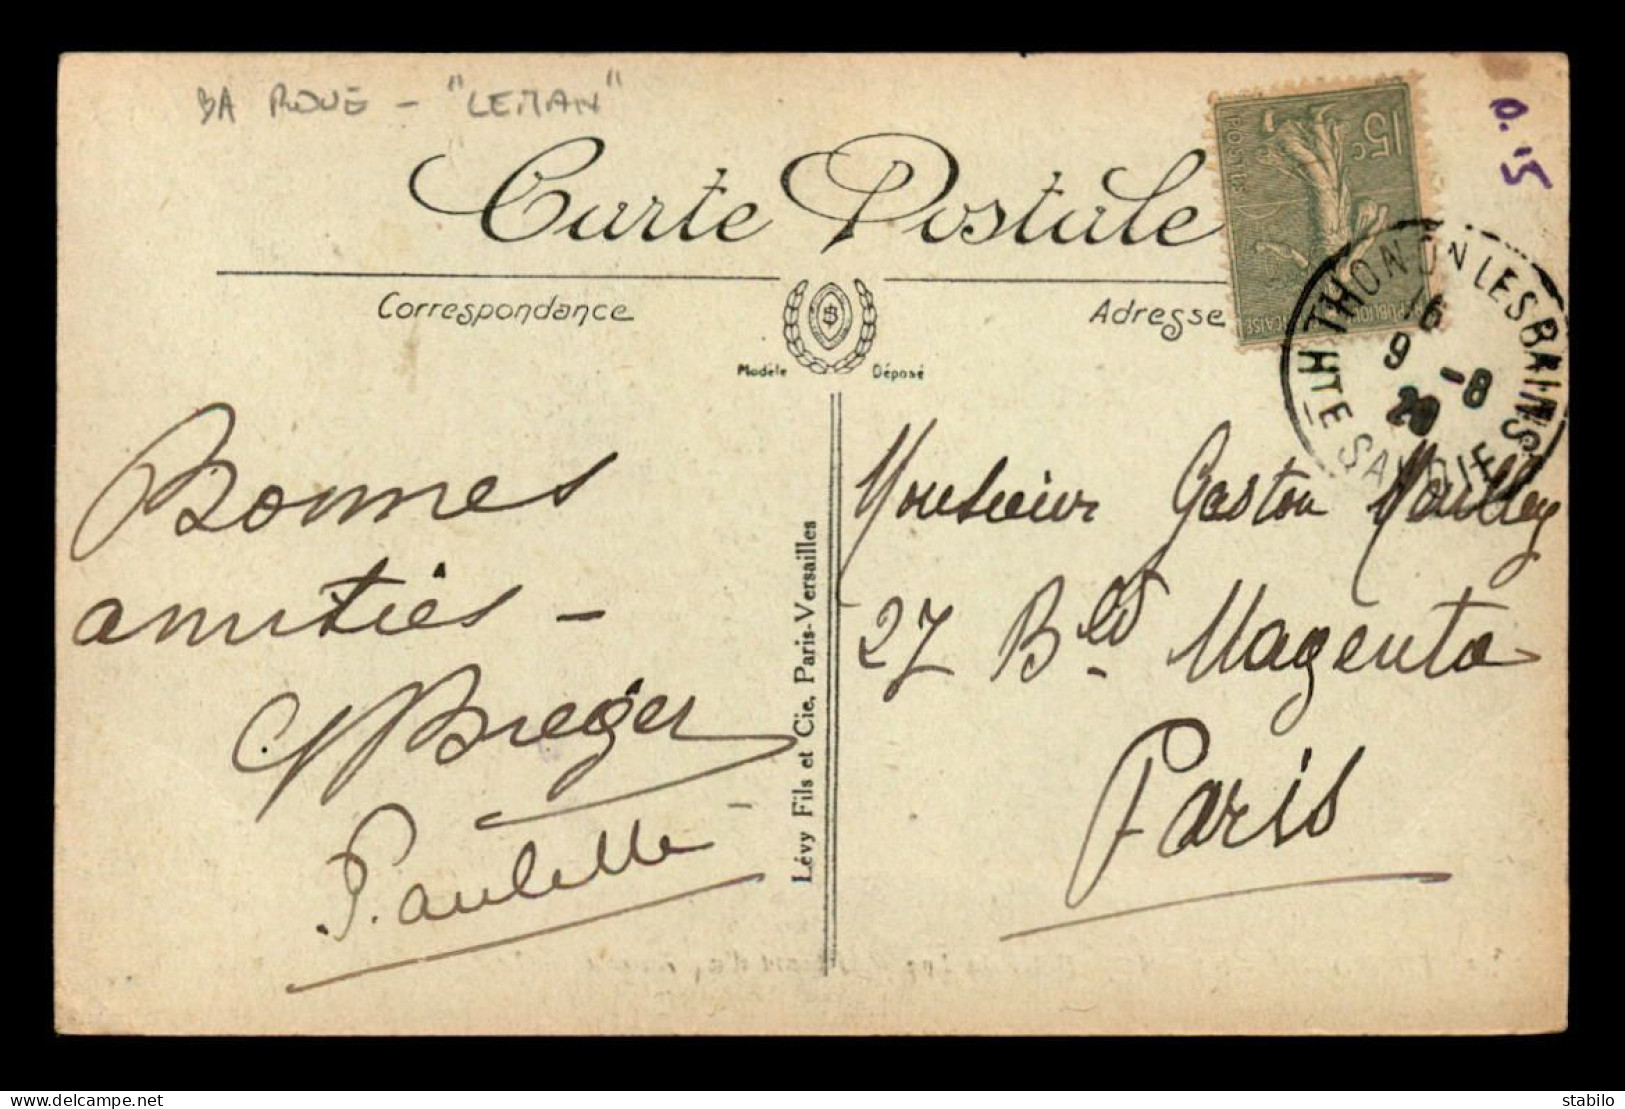 BA ROUE - "LEMAN"
0.15
Carte Postale
15c
POSTES
Correspondance
Adresse
Modèle Déposé
THONON LES BAINS
16
9 -8
20
HTE SAVOIE
Bonnes
amitiés -
Breger
Paulette
Lévy Fils et Cie, Paris-Versailles
Monsieur Gaston
27 Bld Magenta
Paris
delcampe.net
stabilo